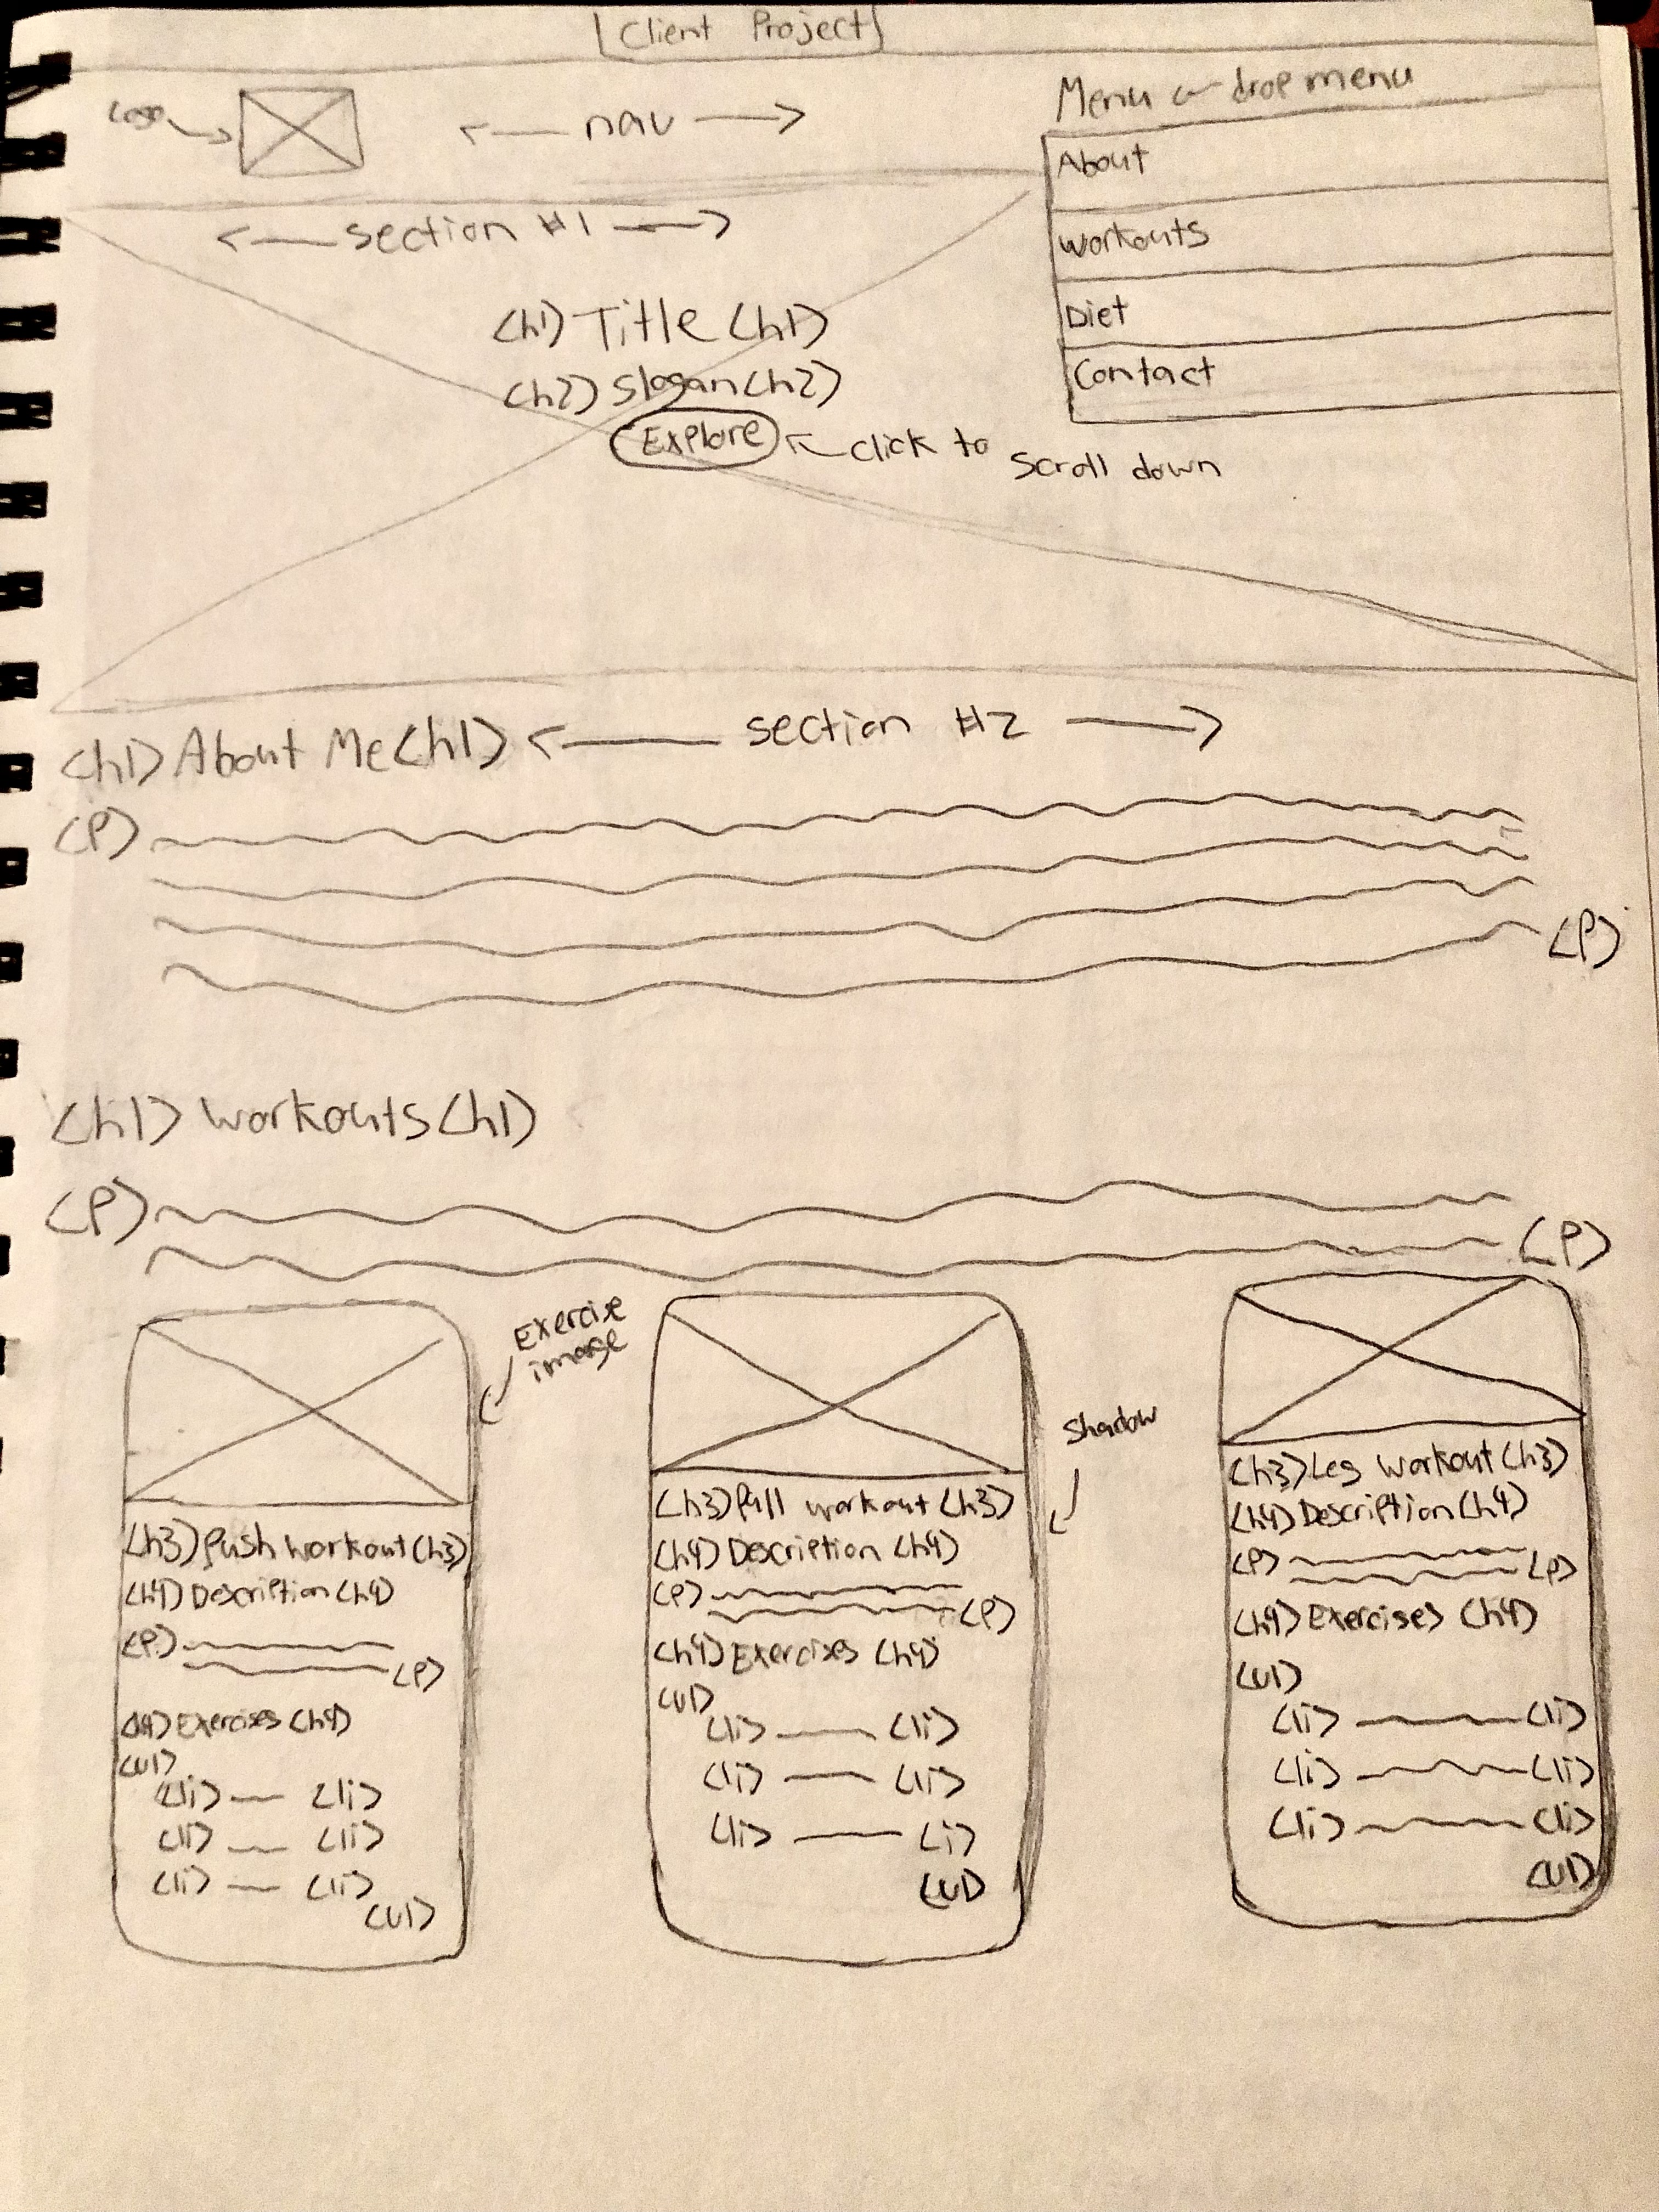 [Client Project]
Logo
nav
Menu drop menu
About
Workouts
Diet
Contact
section #1
<h1> Title <h1>
<h2> Slogan <h2>
Explore
click to scroll down
<h1> About Me <h1>
section #2
<P>
<P>
<h1> Workouts <h1>
<P>
<P>
Exercise
image
Shadow
<h3> Push workout <h3>
<h4> Description <h4>
<P>
<P>
<h4> Exercises <h4>
<ul>
<li> <li>
<li> <li>
<li> <li>
<ul>
<h3> Pull workout <h3>
<h4> Description <h4>
<P>
<P>
<h4> Exercises <h4>
<ul>
<li> <li>
<li> <li>
<li> <li>
<ul>
<h3> Leg workout <h3>
<h4> Description <h4>
<P>
<P>
<h4> Exercises <h4>
<ul>
<li> <li>
<li> <li>
<li> <li>
<ul>